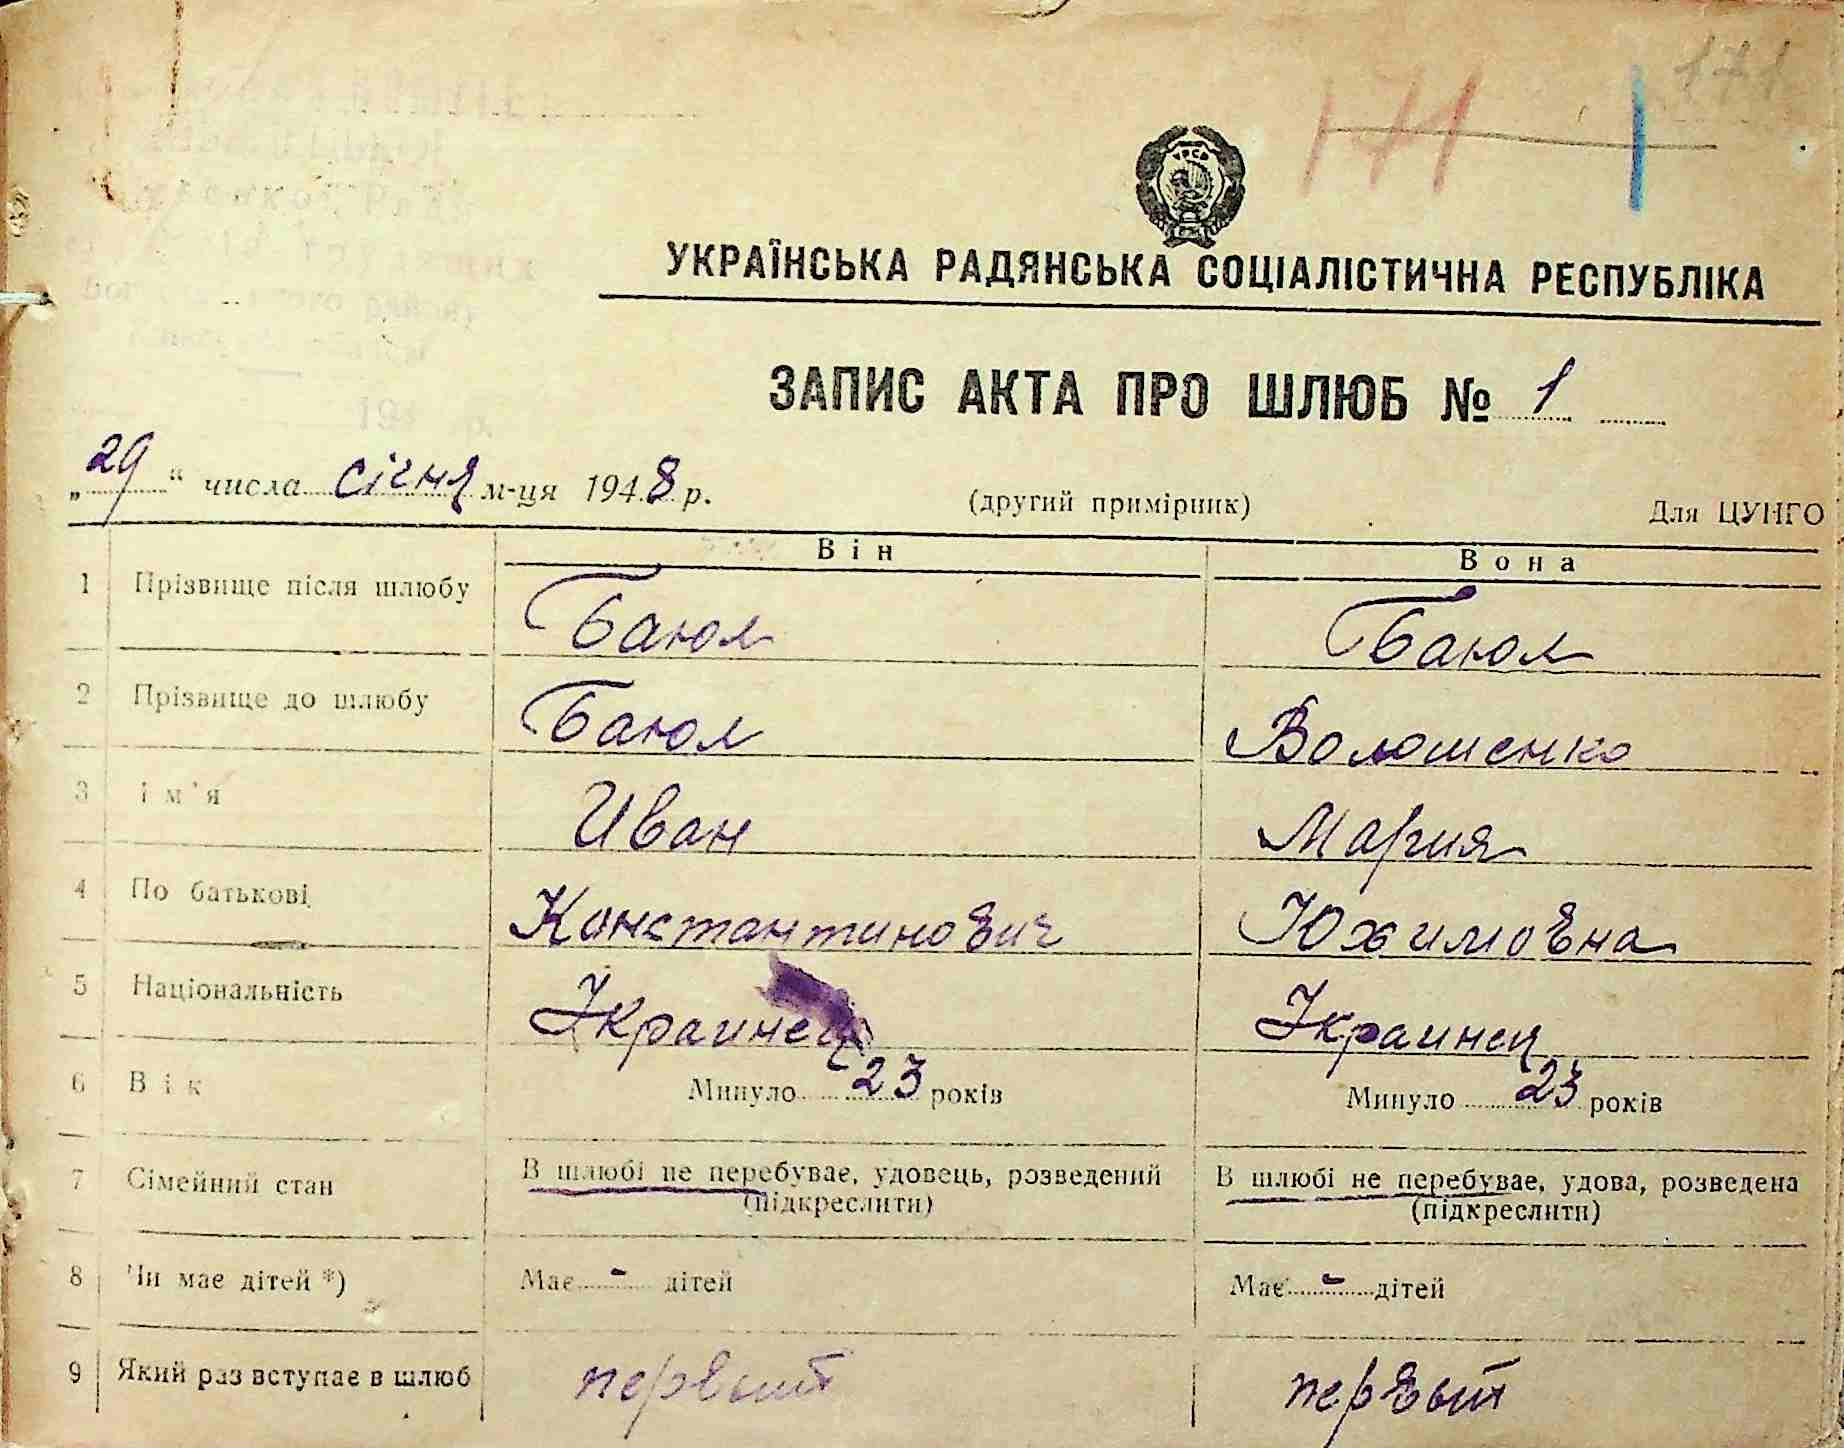 171
171
УРСР
УКРАЇНСЬКА РАДЯНСЬКА СОЦІАЛІСТИЧНА РЕСПУБЛІКА
ЗАПИС АКТА ПРО ШЛЮБ № 1
„29“ числа січня м-ця 1948 р. (другий примірник) Для ЦУНГО
Він Вона
1 Прізвище після шлюбу Баюл Баюл
2 Прізвище до шлюбу Баюл Волошенко
3 Ім'я Иван Мария
4 По батькові Константинович Юхимовна
5 Національність Украинец Украинец
6 Вік Минуло 23 років Минуло 23 років
7 Сімейний стан В шлюбі не перебуває, удовець, розведений В шлюбі не перебуває, удова, розведена
(підкреслити) (підкреслити)
8 Чи має дітей *) Має - дітей Має - дітей
9 Який раз вступає в шлюб первый первый